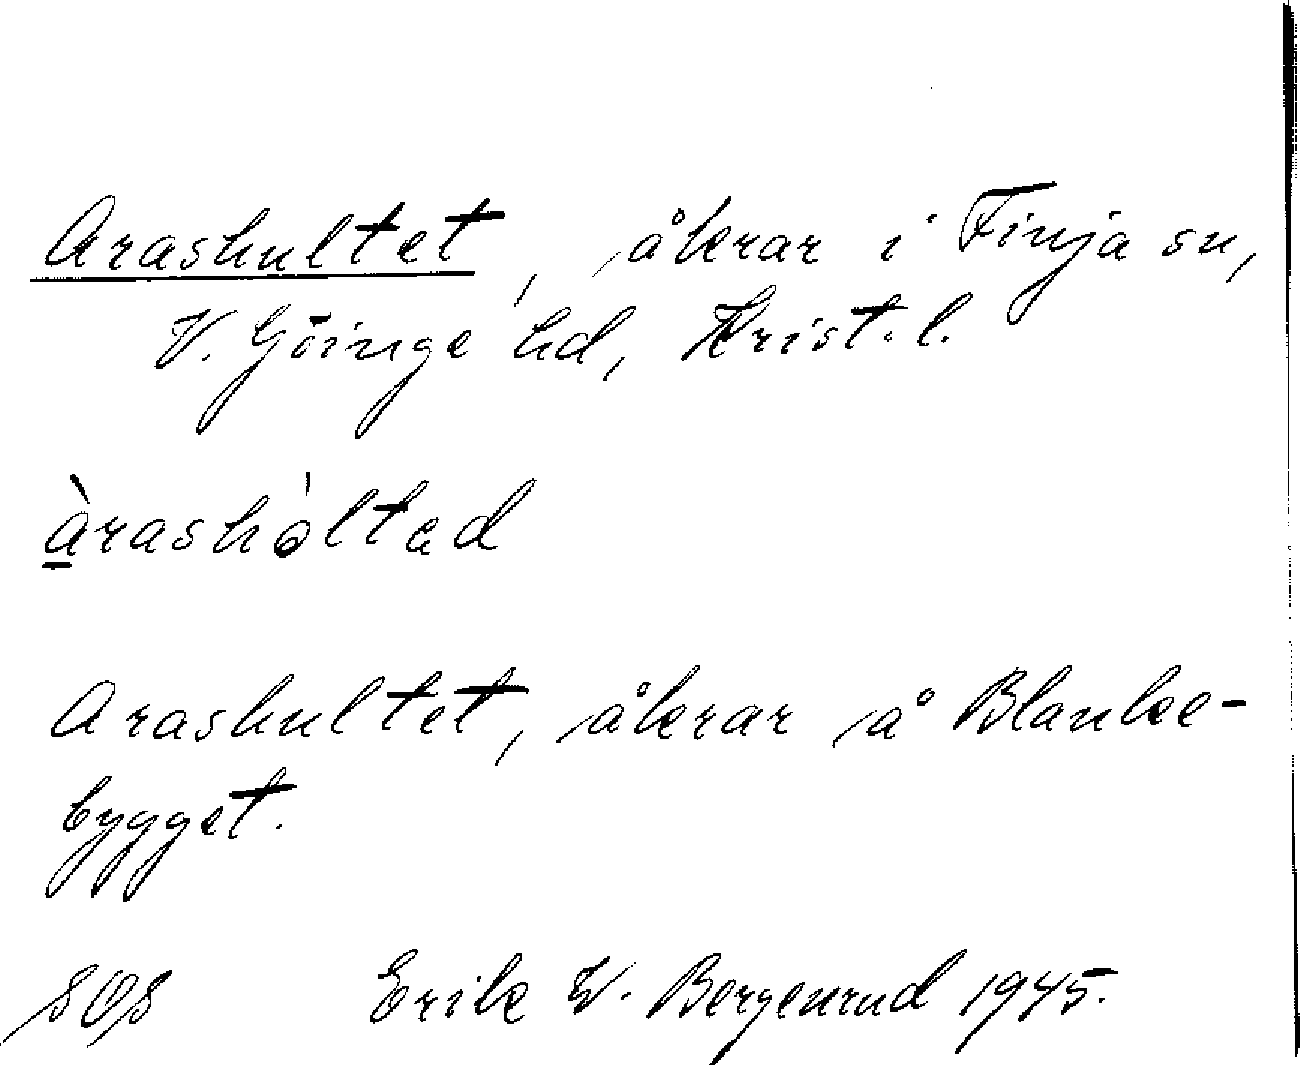 Arashultet, åkrar i Finja sn,
V. Göinge hd, Krist. l.
àrashòltəd
Arashultet, åkrar å Blanke-
bygget.
SOS Erik W. Bergenrud 1945.